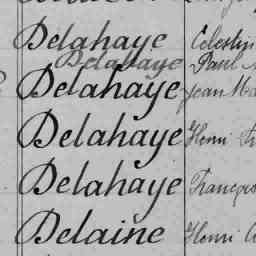 Delahaye Celestin
Delahaye Paul
Delahaye Jean Ma
Delahaye Henri
Delahaye François
Delaine Henri